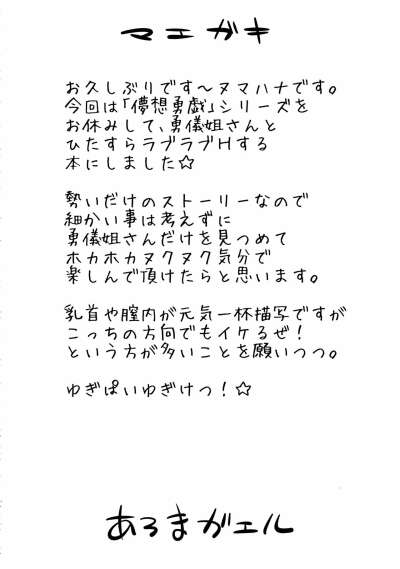 マエガキ
お久しぶりです～ヌマハナです。
今回は「儚想勇戯」シリーズを
お休みして、勇儀姐さんと
ひたすらラブラブHする
本にしました☆
勢いだけのストーリーなので
細かい事は考えずに
勇儀姐さんだけを見つめて
ホカホカヌクヌク気分で
楽しんで頂けたらと思います。
乳首や膣内が元気一杯描写ですが
こっちの方向でもイケるぜ!
という方が多いことを願いつつ。
ゆぎぱいゆぎけつ!☆
あろまがエル